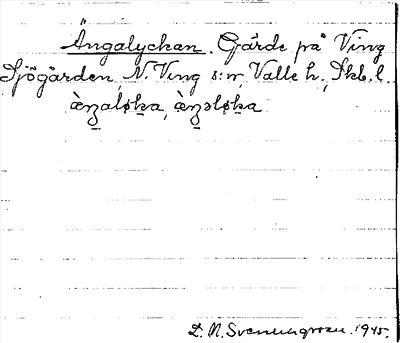 Ängalyckan. Gärde på Ving
Sjögården, N. Ving s:n, Valle h., Skb. l.
àŋaløka, àŋəløka
D. N. Svenungsson. 1945.